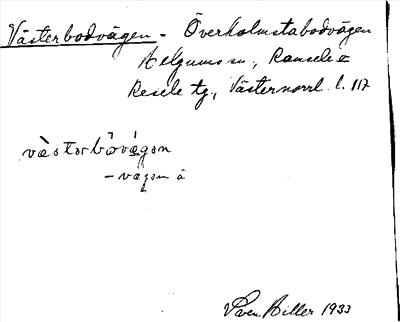 Västerbodvägen - Överholmstabodvägen
Helgums sn, Ramsele o
Resele tg., Västernorrl. l. 117
västərbòvägən
- vägən â
Sven Hiller 1933